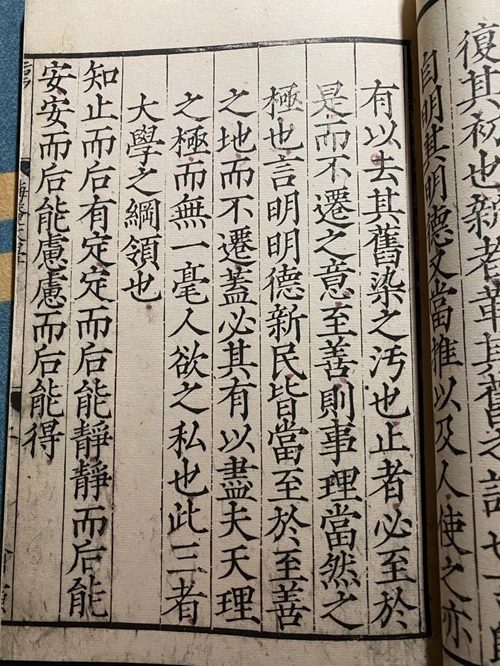 復其初也新者革其舊之謂也言
自明其明德又當推以及人使之亦
有以去其舊染之汚也止者必至於
是而不遷之意至善則事理當然之
極也言明明德新民皆當至於至善
之地而不遷蓋必其有以盡夫天理
之極而無一毫人欲之私也此三者
大學之綱領也
知止而后有定定而后能靜靜而后能
安安而后能慮慮而后能得